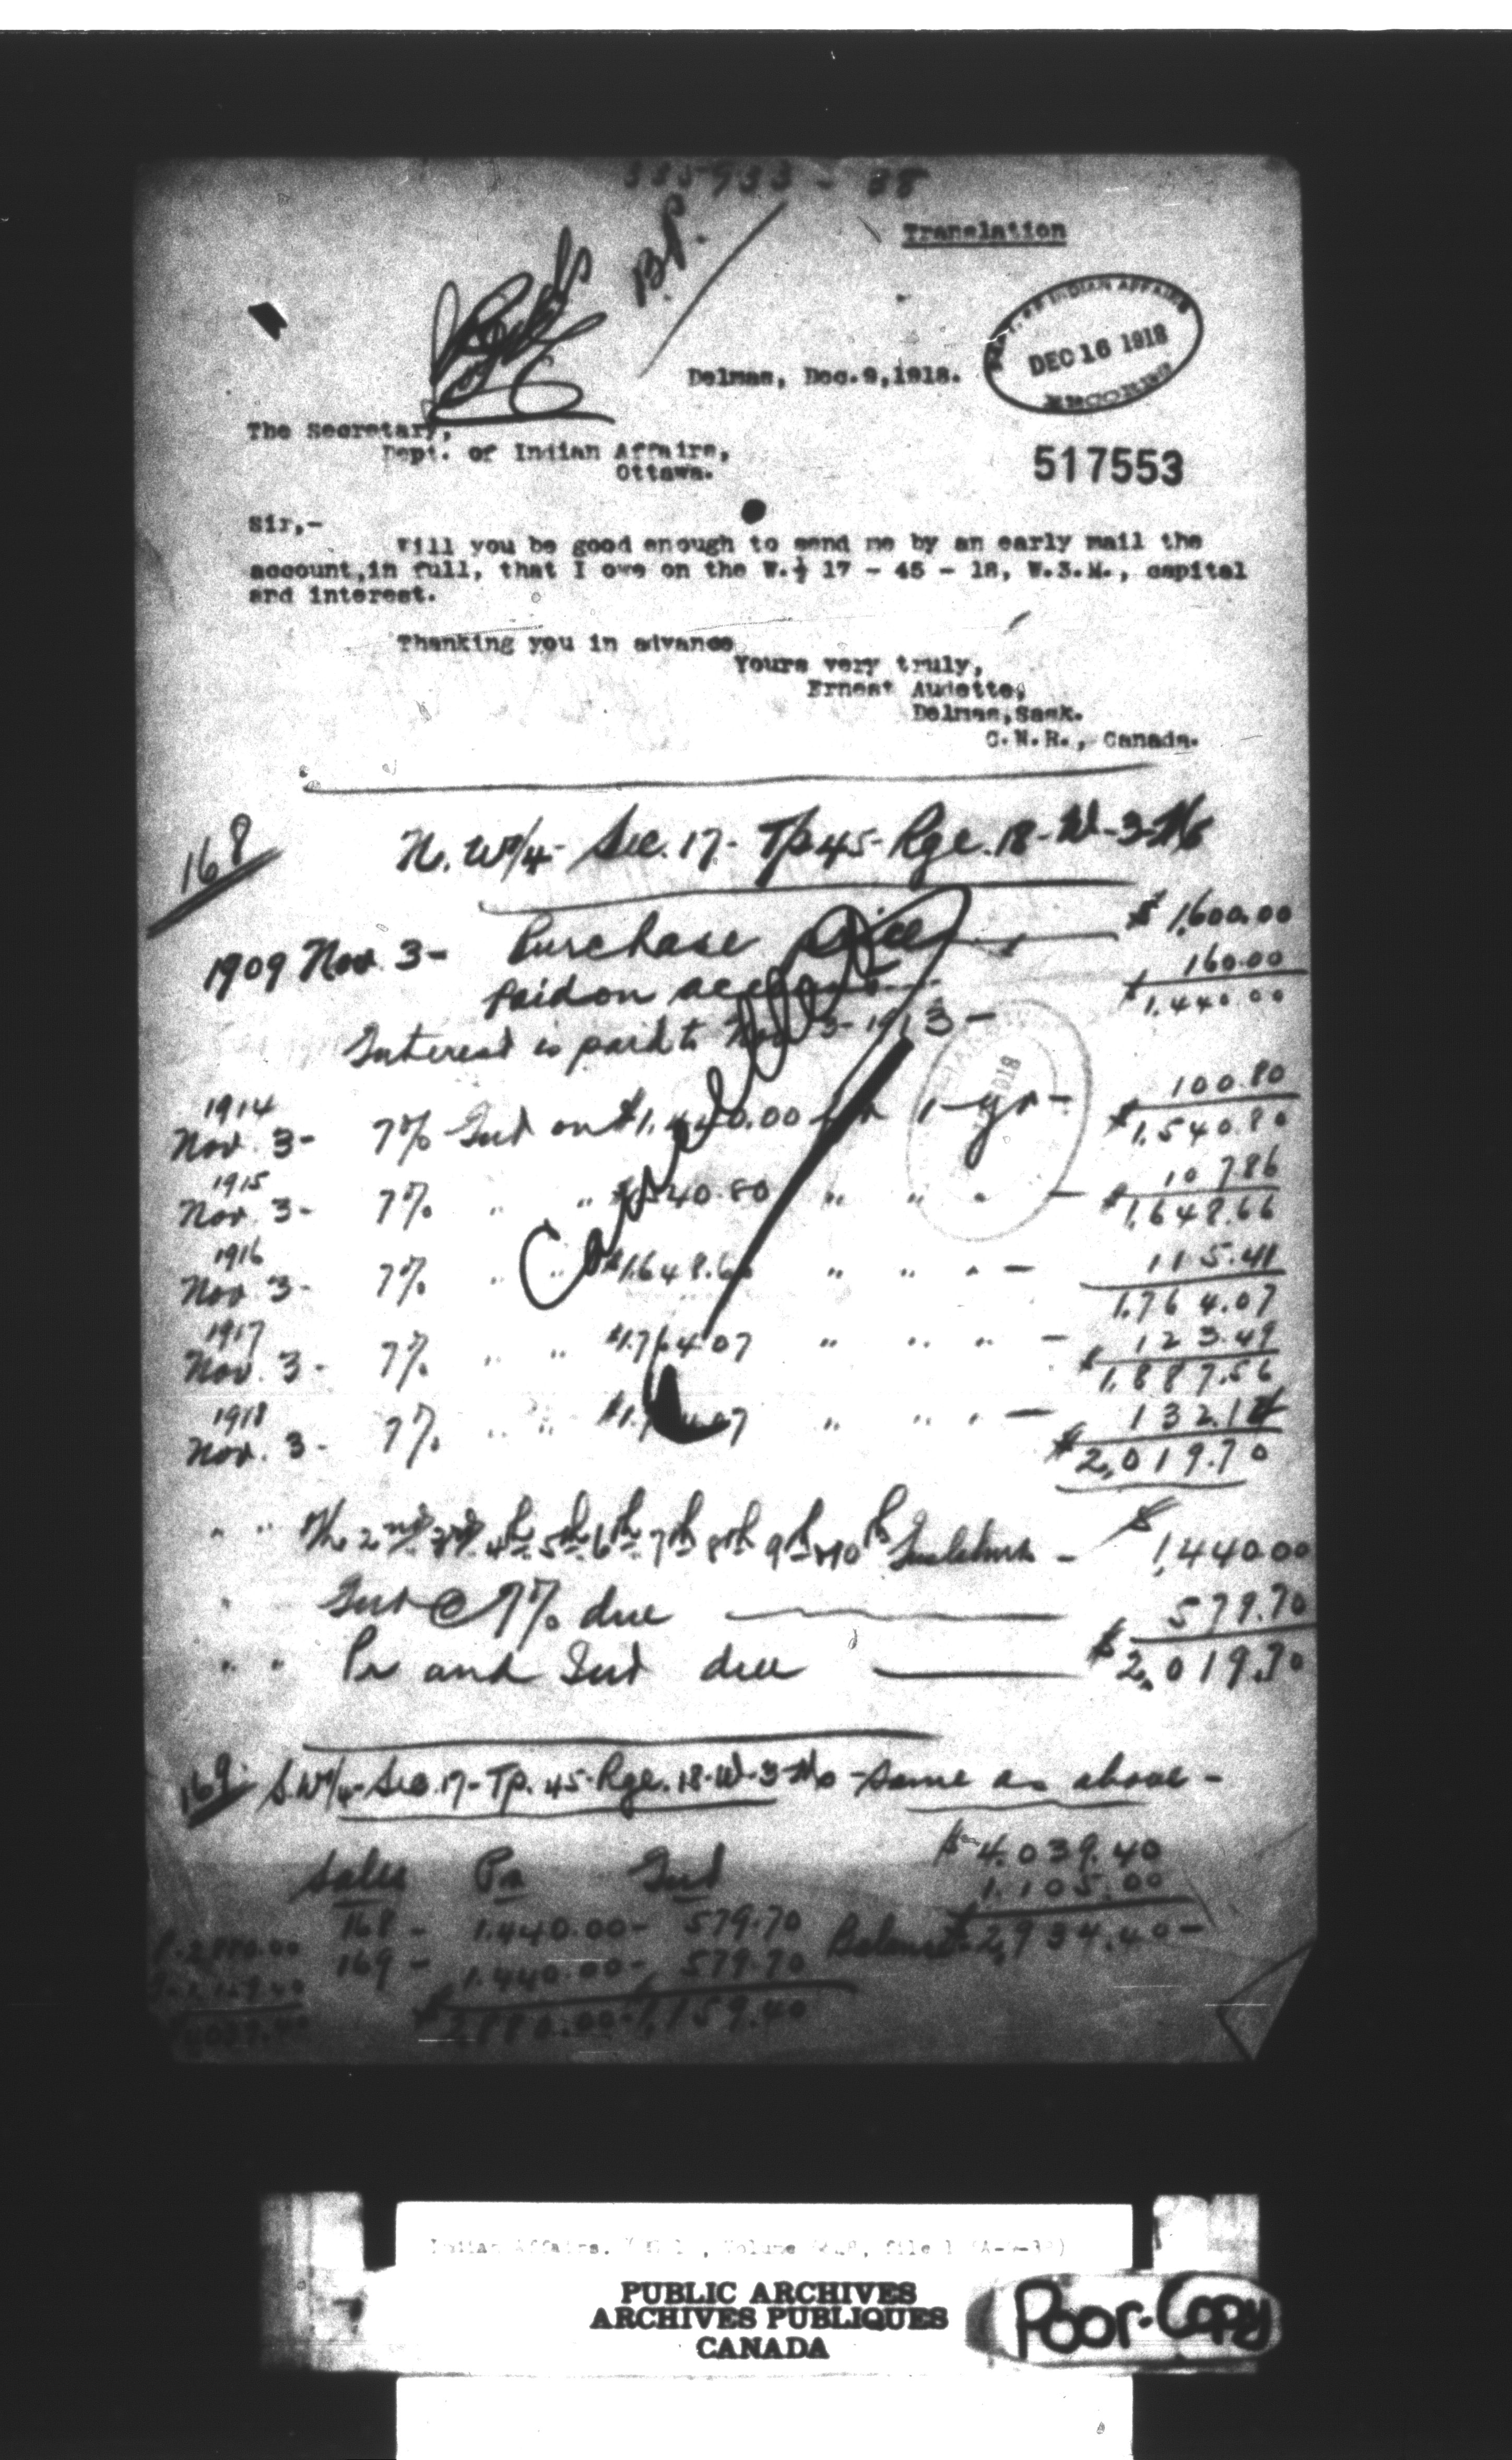 385933 - 38
Translation
B.P.
DEPT. OF INDIAN AFFAIRS
DEC 16 1918
Delmas, Dec.9,1918.
The Secretary,
Dept. of Indian Affairs,
Ottawa.
517553
Sir,-
Will you be good enough to send me by an early mail the
account,in full, that I owe on the W.½ 17 - 45 - 18, W.3.M., capital
and interest.
Thanking you in advance
Yours very truly,
Ernest Audette,
Delmas,Sask.
C.N.R., Canada.
168 N. W1/4- Sec. 17- Tp 45- Rge. 18- W-3-M
1909 Nov. 3- Purchase price $1,600.00
paid on account 160.00
$1,440.00
Interest is paid to Nov 3- 1913-
Cancelled
1914
Nov. 3- 7% Int on $1,440.00 for 1 yr- 100.80
$1,540.80
1915
Nov. 3- 7% " " $1,540.80 " " " - 107.86
$1,648.66
1916
Nov. 3- 7% " " $1,648.66 " " " - 115.41
1,764.07
1917
Nov. 3- 7% " " $1,764.07 " " " - 123.49
$1,887.56
1918
Nov. 3- 7% " " " " " - 132.14
$2,019.70
" " The 2nd 3rd 4th 5th 6th 7th 8th 9th & 10th - $1,440.00
" Int @ 7% due 579.70
" " Pr and Int due $2,019.70
169 S.W1/4-Sec.17-Tp.45-Rge.18-W-3-M - same as above -
$4,039.40
1,105.00
Balance $2,934.40-
Sales Pr Int
168 - 1,440.00 - 579.70
169 - 1,440.00 - 579.70
$2,880.00 - 1,159.40
2,880.00
1,159.40
4039.40
PUBLIC ARCHIVES
ARCHIVES PUBLIQUES
CANADA
Poor-Copy